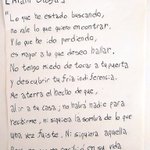 "Lo que he estado buscando,
no vale lo que quiero encontrar.
Y lo que he ido perdiendo,
es mayor a lo que deseo hallar.
No tengo miedo de tocar a tu puerta
y descubrir tu fría indiferencia.
Me aterra el hecho de que,
al ir a tu casa; no habrá nadie para
recibirme, ni siquiera la sombra de lo que
una vez fuiste. Ni siquiera aquella
en su vida